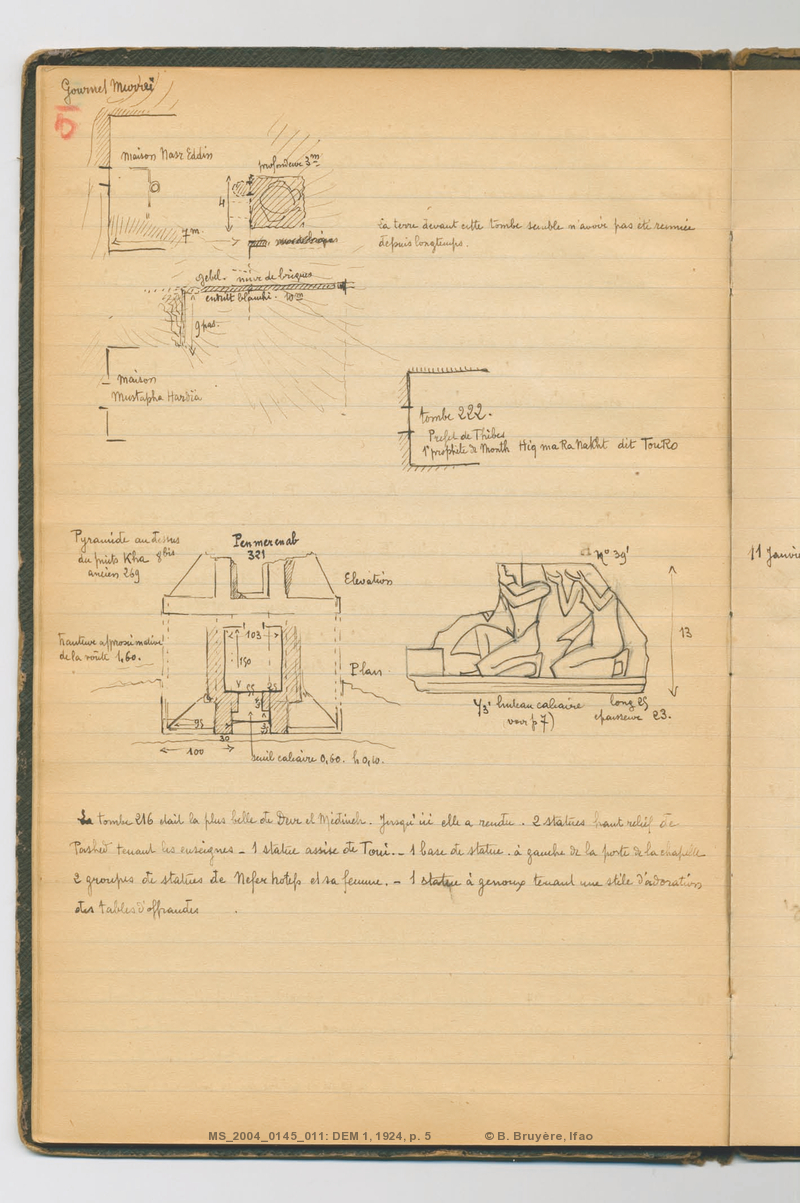 Gournet Murraï
5
Maison Nasr Eddin
profondeur 3m
4
7m
La terre devant cette tombe semble n'avoir pas été remuée
depuis longtemps.
gebel. mur de briques
enduit blanchi. 10m
9 pas.
Maison
Mustapha Hardia
tombe 222.
Préfet de Thèbes
1r prophète de Month Hiq ma Ra Nakht dit TouRo
Pyramide au dessus
du puits Kha 8bis
ancien 269
Penmerenab
321
Elévation
hauteur approximative
de la voûte 1,60.
103
150
55
25
Plan
95
30
100
seuil calcaire 0,60. h 0,10.
No 39'
13
1/3 linteau calcaire
voir p 7)
long 25
épaisseur 23.
11 Janvie
La tombe 216 était la plus belle de Deir el Médineh. Jusqu'ici elle a rendu. 2 statues haut relief de
Pashed tenant les enseignes - 1 statue assise de Toui. - 1 base de statue. à gauche de la porte de la chapelle
2 groupes de statues de Nefer hoteps et sa femme. - 1 statue à genoux tenant une stèle d'adoration
des tables d'offrandes.
MS_2004_0145_011: DEM 1, 1924, p. 5 © B. Bruyère, Ifao